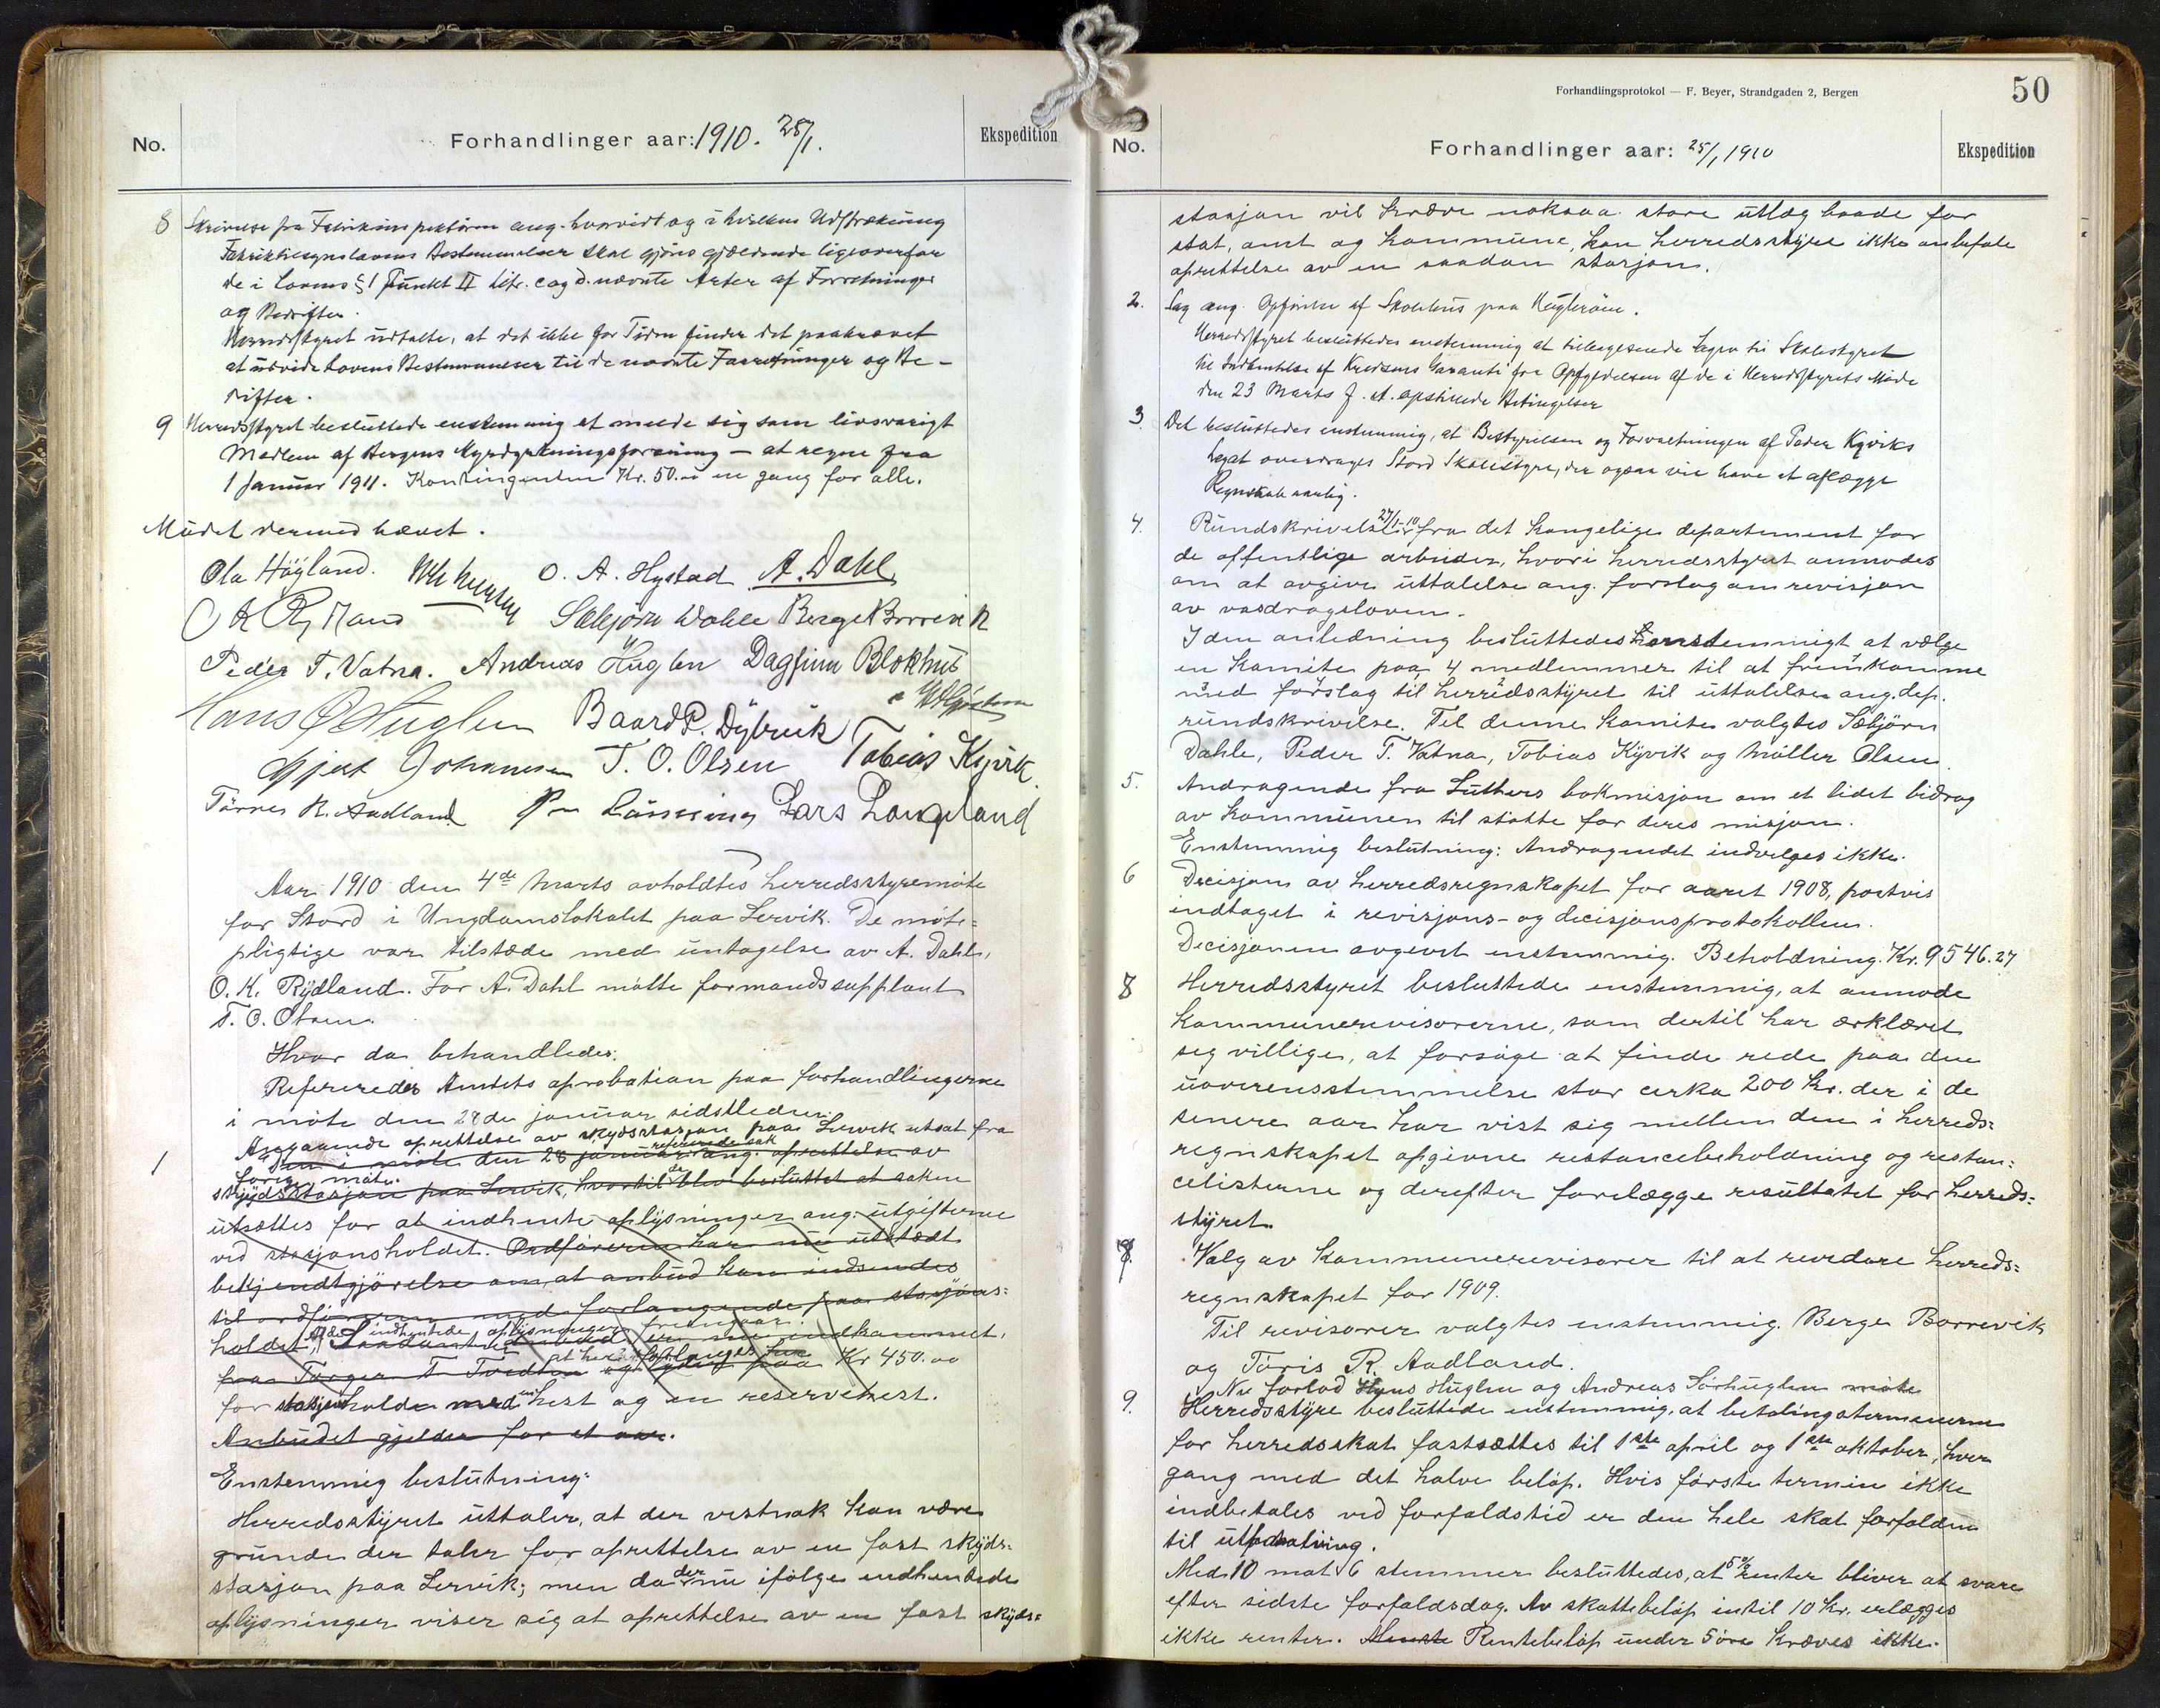 No.
Forhandlinger aar: 1910. 25/1.
Ekspedition
8 Skrivelse fra Fabrikinspektøren ang. hvorvidt og i hvilken Udstrækning
Fabriktilsynslovens Bestemmelser skal gjøres gjældende ligeoverfor
de i Lovens § 1 Punkt II litr. c og d. nævnte Arter af Forretninger
og Bedrifter.
Herredsstyret udtalte, at det ikke for Tiden finder det paakrævet
at udvide Lovens Bestemmelser til de nævnte Forretninger og Be-
drifter.
9 Herredsstyret besluttede enstemmig at melde sig som livsvarigt
Medlem af Bergens Myrdyrkningsforening – at regne fra
1 Januar 1911. Kontingenten Kr. 50.00 en gang for alle.
Mødet dermed hævet.
Ola Høgland. O. A. Hystad A. Dahl
O K Rydland Sæbjørn Dahle Berge Borrevik
Peder T. Vatna. Andreas Huglen Dagfinn Blokhus
Hans O Huglen Baard P. Dybvik
Gjert Johannesen T. O. Olsen Tobias Kyvik
Tørres R. Aadland Lars Langeland
Aar 1910 den 4de Marts avholdtes herredsstyremøte
for Stord i Ungdomslokalet paa Lervik. De møte=
pligtige var tilstæde med untagelse av A. Dahl,
O. K. Rydland. For A. Dahl møtte formandssupplant
T. O. Olsen.
Hvor da behandledes:
Refereredes Amtets aprobation paa forhandlingerne
i møte den 28de januar sidstleden.
Angaaende oprettelse av skydsstasjon paa Lervik utsat fra
refererede sak
1 Den i møte den 28 januar ang. oprettelse av
forrige møte.
skydsstasjon paa Lervik, hvortil det blev besluttet at saken
utsættes for at indhente oplysninger ang. utgifterne
ved stasjonsholdet. Ordføreren har nu utstædt
bekjendtgjørelse om, at anbud kan indsendes
til ordføreren med forlangende paa stasjons=
Af de indhentede oplysninger fremgaar
holdet. Saadant anbud er nu indkommet,
at her forlanges
fra Torger T. Tvedten og lydt paa Kr 450.00
for stasjonholde med en hest og en reservehest.
Anbudet gjelder for et aar.
Enstemmig beslutning:
Herredsstyret uttaler, at der vistnok kan være
grunde der taler for oprettelse av en fast skyds-
stasjon paa Lervik; men da der nu ifølge indhentede
oplysninger viser sig at oprettelse av en fast skyds=
Forhandlingsprotokol — F. Beyer, Strandgaden 2, Bergen
50
No.
Forhandlinger aar: 25/1 1910
Ekspedition
stasjon vil kræve noksaa store utlæg baade for
stat, amt og kommune, kan herredsstyre ikke anbefale
oprettelse av en saadan stasjon.
2. Sag ang. Opførelse af Skolehus paa Huglerøen.
Herredsstyret besluttedes enstemmig at tilbagesende Sagen til Skolestyret
til Indhentelse af Kredsens Garanti for Opfyldelsen af de i Herredsstyrets Møde
den 23 Marts f. A. opstillede Betingelser
3. Det besluttedes enstemmig, at Bestyrelsen og Forvaltningen af Peder Kyviks
Legat overdrages Stord Skolestyre, der ogsaa vil have at aflægge
Regnskab aarlig.
4. Rundskrivelse 27/1-10 fra det kongelige departement for
de offentlige arbeider, hvori herredsstyret anmodes
om at avgive uttalelse ang. forslag om revisjon
av vasdragsloven.
I den anledning besluttedes enstemmigt at vælge
en komite paa 4 medlemmer til at fremkomme
med forslag til herredsstyret til uttalelse ang. dep.
rundskrivelse. Til denne komite valgtes Sæbjørn
Dahle, Peder T. Vatna, Tobias Kyvik og Møller Olsen.
5. Andragende fra Luthers bokmisjon om et lidet bidrag
av kommunen til støtte for deres misjon.
Enstemmig beslutning: Andragendet indvilges ikke.
6 Decisjon av herredsregnskapet for aaret 1908, postvis
indtaget i revisjons- og decisjonsprotokollen.
Decisjonen avgevet enstemmig. Beholdning. Kr. 9546.27
8 Herredsstyret besluttede enstemmig, at anmode
kommunerevisorerne, som dertil har erklæret
seg villige, at forsøge at finde rede paa den
uoverensstemmelse stor cerka 200 kr. der i de
senere aar har vist sig mellem den i herreds=
regnskapet opgivne restancebeholdning og restan=
celisterne og derefter forelægge resultatet for herreds=
styret.
7. Valg av kommunerevisorer til at revidere herreds=
regnskapet for 1909.
Til revisorer valgtes enstemmig. Berge Borrevik
og Tøris R. Aadland.
Nu forlod Hans Huglen og Andreas Sørhuglen møte
9. Herredsstyre besluttede enstemmig, at betalingsterminerne
for herredsskat fastsættes til 1ste april og 1ste oktober, hver
gang med det halve beløp. Hvis første termin ikke
indbetales ved forfaldstid er den hele skat forfalden
til utpantning.
Med 10 mot 6 stemmer besluttedes, at 5% renter bliver at svare
efter sidste forfaldsdag. Av skattebeløp intil 10 kr. erlægges
ikke renter. Rentebeløp under 5 øre kræves ikke.